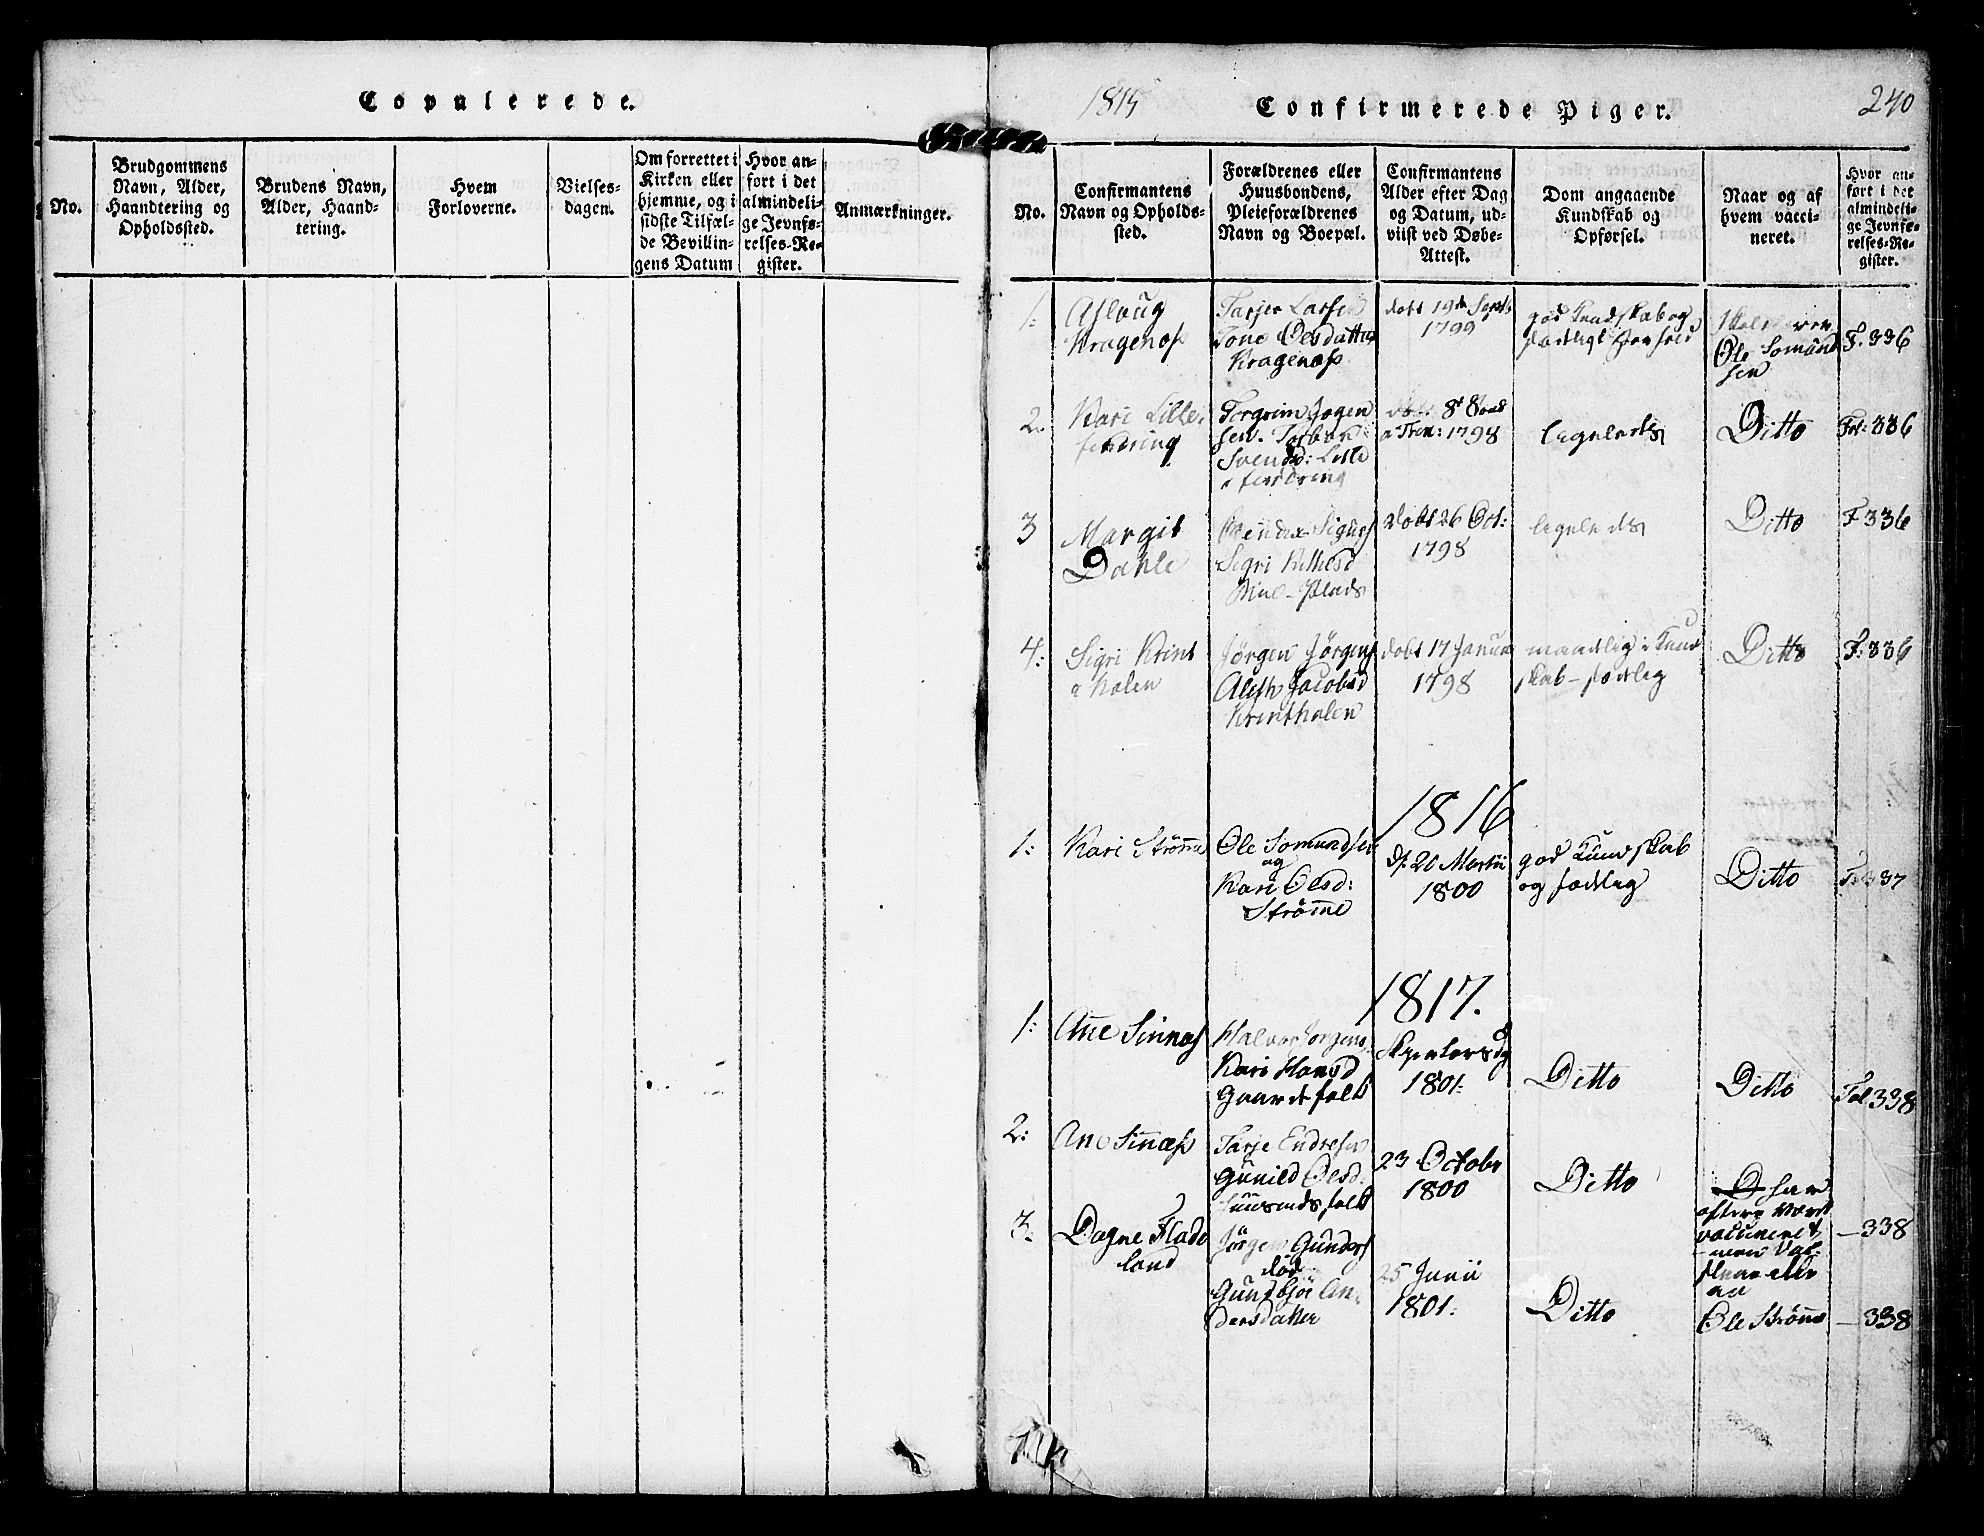 Copulerede.
No.
Brudgommens
Navn, Alder,
Haandtering og
Opholdssted.
Brudens Navn,
Alder, Haand-
tering.
Hvem
Forloverne.
Vielses-
dagen.
Om forrettet i
Kirken eller
hjemme, og i
sidste Tilfæl-
de Bevillin-
gens Datum
Hvor an-
ført i det
almindeli-
ge Jevnfø-
relses-Re-
gister.
Anmærkninger.
1815
Confirmerede Piger.
240
No.
Confirmantens
Navn og Opholds-
sted.
Forældrenes eller
Huusbondens,
Pleieforældrenes
Navn og Boepæl.
Confirmantens
Alder efter Dag
og Datum, ud-
viist ved Døbe-
Attest.
Dom angaaende
Kundskab og
Opførsel.
Naar og af
hvem vacci-
neret.
Hvor an-
ført i det
almindeli-
ge Jevnfø-
relses-Re-
gister.
1.
Aslaug
Kragenæs
Tarjer Larsen
Tone Olsdatter
Kragenæs
døbt 19de Sept:
1799
god Kundskab og
sædeligt Forhold
Ole Somund
sen
F. 336
2.
Kari Lille
Torgrim
Svends: Lille
1798
ligeleds
Ditto
Fol: 336
3
Margit
Dahle
Sigri
Plads
døbt 26 Oct:
1798
ligeleds
Ditto
F 336
4:
Sigri Krint
holen
Jørgen Jørgens
Aleth Jacobsd
Krintholen
døbt 17 Janua
1798
maadelig i Kund
skab - sædelig
Ditto
F: 336
1816
1:
Kari Strømme
Ole Somundsen
og
Kari Olsd:
Strømme
d: 20 Martii
1800
god Kundskab
og sædelig
Ditto
F: 337
1817.
1:
Ane Sinnes
Halvor Jorgens
Kari Hansd
Gaardefolk
1801:
Ditto
Ditto
Fol 338
2:
Ane Sinnæs
Tarje Endresen
Gunild Olsd:
Huusmdsfolk
23 Octobr
1800
Ditto
har
været
vaccineret
men
338
3.
Dagne Flado
land
Jørgen Gunders
død
Gundbjør An-
dersdatter
25 Junii
1801:
Ditto
Ole Strømme
338